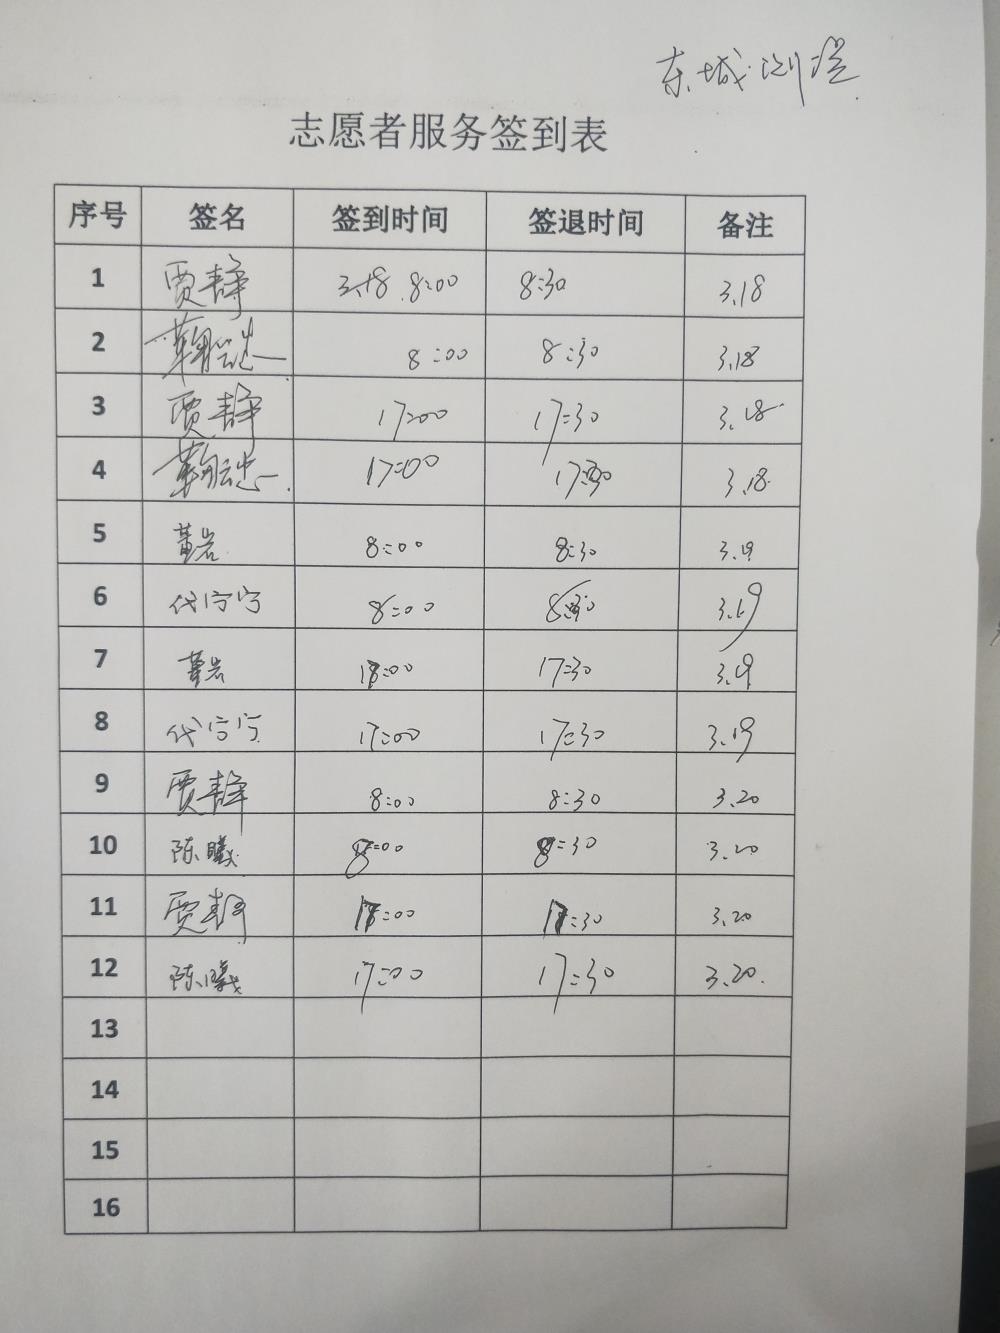 东城
志愿者服务签到表
序号 签名 签到时间 签退时间 备注
1 贾静 3.18 8:00 8:30 3.18
2 8:00 8:30 3.18
3 贾静 17:00 17:30 3.18
4 17:00 17:30 3.18
5 董岩 8:00 8:30 3.19
6 代宁宁 8:00 8:30 3.19
7 董岩 17:30 3.19
8 代宁宁 17:00 17:30 3.19
9 贾静 8:00 8:30 3.20
10 陈曦 8:00 8:30 3.20
11 贾静 17:00 17:30 3.20
12 陈曦 17:00 17:30 3.20
13
14
15
16